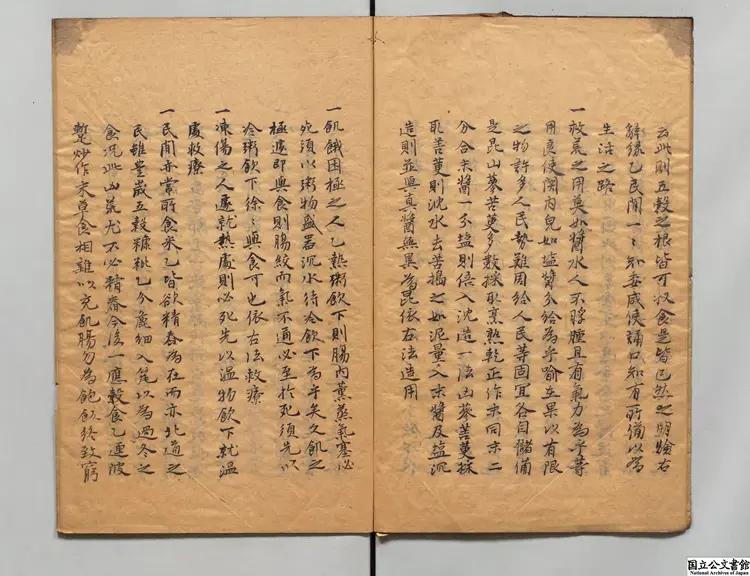 云此則五穀之根皆可以食是皆已然之明驗右
辭緣乙民間一一知委咸使誦口知有所備以爲
生活之路
一救荒之用莫如醬水人不脬腫且有氣力爲乎等
用良使關內兒如塩醬分給爲乎喻在果以有限
之物許多人民勢難周給人民等固宜各自儲備
是昆山蔘苦葍多數採取烹熟乾正作末同末二
分合末醬一分塩則倍入沈造一法山蔘菩葍採
取菩葍則沈水去苦搗之如泥量入末醬及塩沉
造則並與真醬無異爲昆依右法造用
一飢餓困極之人乙熱粥飲下則腸內薰蒸氣塞必
死須以粥物盛器沉水待冷飲下爲乎矣久飢之
極遽即與食則腸絞而氣不通必至於死須先以
冷粥飲下徐々與食可也依右法救療
一凍傷之人遽就熱處則必死先以温物飲下就温
處救療
一民間亦常所食米乙皆欲精舂爲在而亦北道之
民雖豊歲五穀糠粃乙分麁細入蓖以爲過冬之
食況此凶荒尤不必精舂今後一應穀食乙連皮
塹炒作末草食相雜以充飢腸勿爲飽飯終致窮
国立公文書館
National Archives of Japan